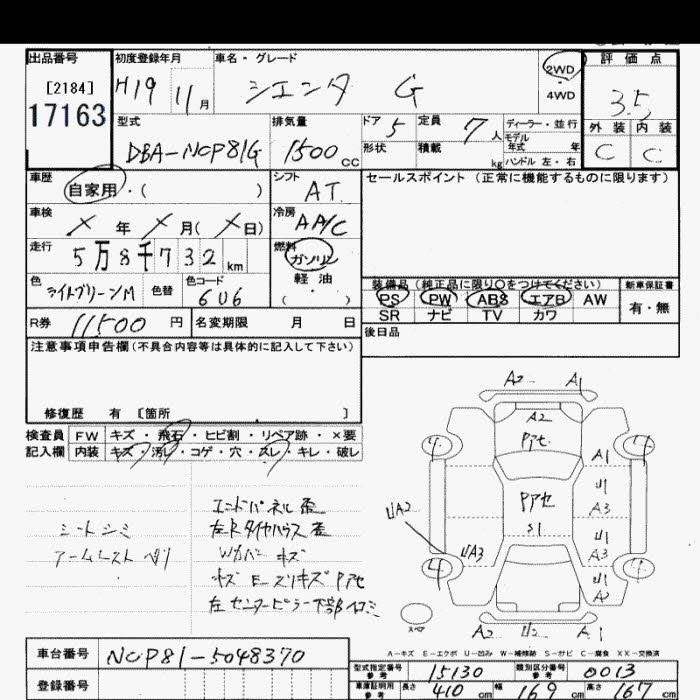 出品番号 初度登録年月 車名・グレード 2WD 評価点
[2184] H19 11月 シエンタ G ・ 4WD 3.5
17163 型式 排気量 ドア 5 定員 7人 ディーラー・並行 外装 内装
DBA-NCP81G 1500cc 形状 積載 kg モデル年式 年 ハンドル 左・右 C C
車歴 自家用・( ) シフト AT セールスポイント(正常に機能するものに限ります)
車検 × 年 × 月(×日) 冷房 AA/C
走行 5万8千732km 燃料 ガソリン
軽油
色 ライトグリーンM 色替 色コード 6U6 ・ ( )
装備品(純正品に限り○をつけてください) 新車保証書
PS PW ABS エアB AW 有・無
SR ナビ TV カワ
R券 11500円 名変期限 月 日
後日品
注意事項申告欄(不具合内容等は具体的に記入して下さい)
修復歴 有 [箇所 ]
検査員 FW キズ・飛石・ヒビ割・リペア跡・×要
記入欄 内装 キズ・汚レ・コゲ・穴・スレ・キレ・破レ
A2 A1
A2
Pアセ
A1
U1
Pアセ A3
S1
UA2 U1
UA3 A3
U1
A2
スペア
A2 U2 A1
エンドパネル歪
シートシミ 左Rタイヤハウス歪
Wカバー キズ
キズ E・ズリキズ Pアセ
左センターピラー下部
A-キズ E-エクボ U-凹み W-補修跡 S-サビ C-腐食 XX-交換済
車台番号 NCP81-5048370
型式指定番号 参考 15130 類別区分番号 参考 0013
登録番号
車庫証明用 参考 長さ 410cm 幅 169cm 高さ 167cm